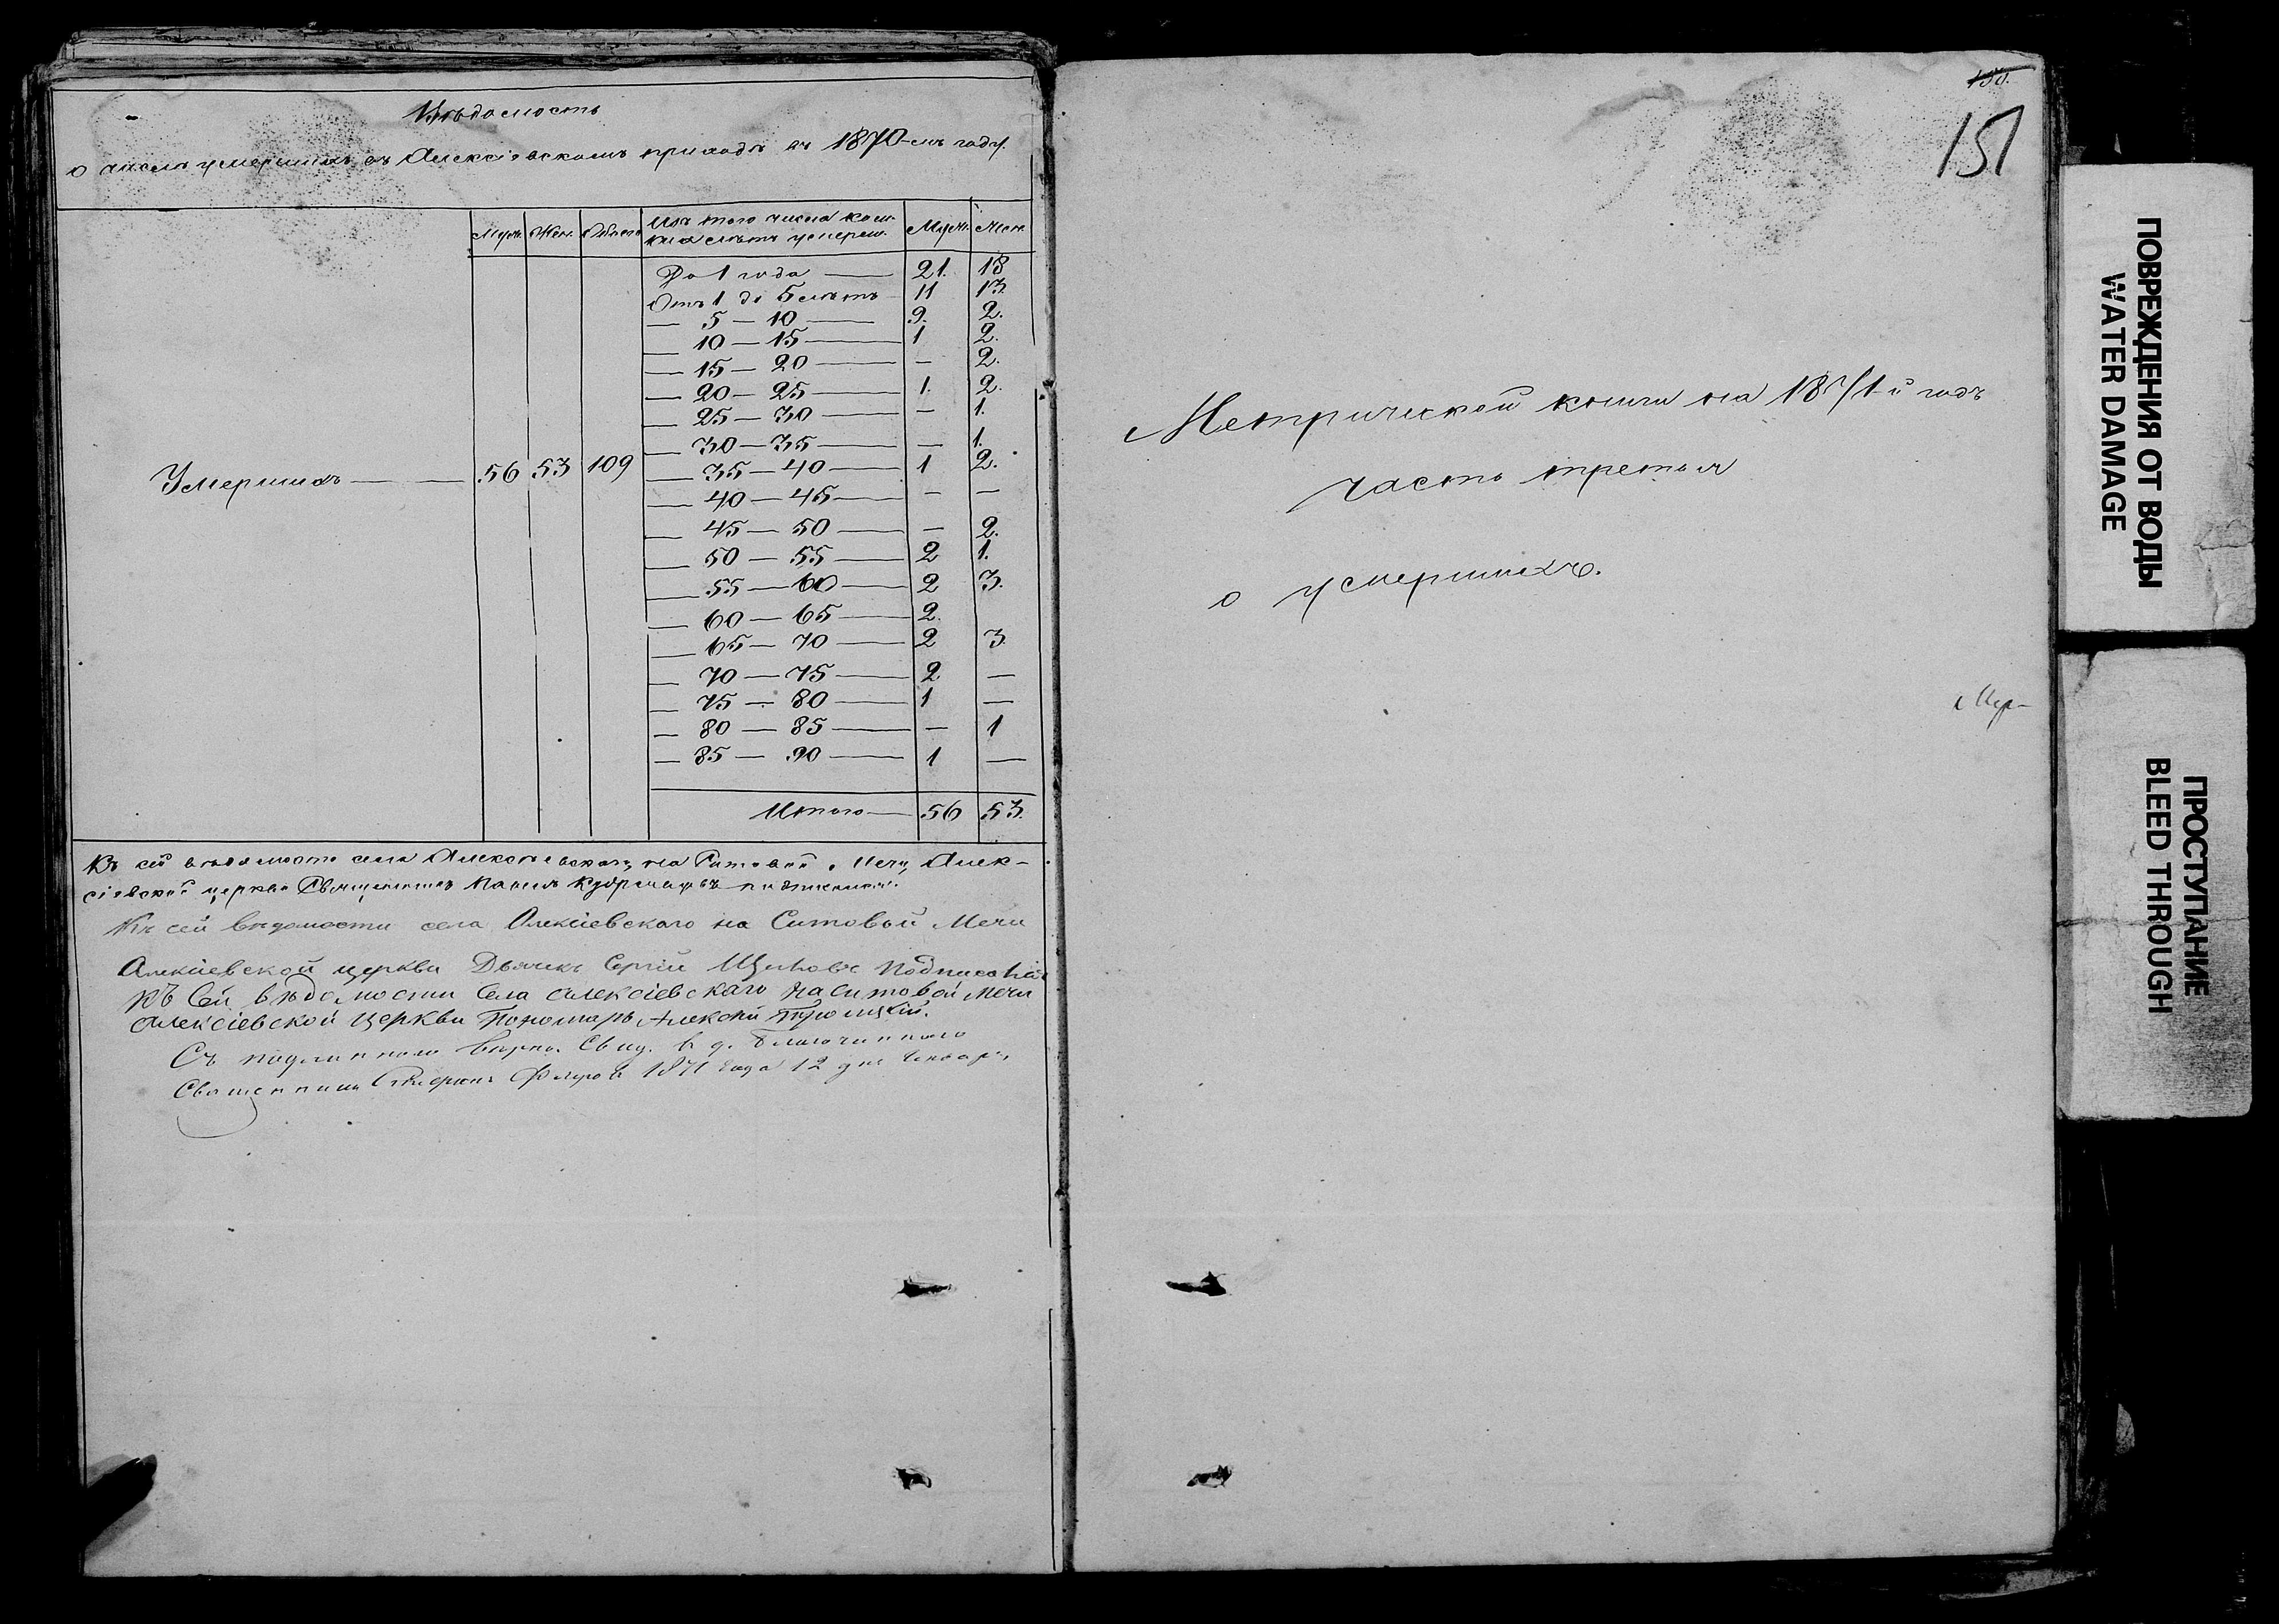 Вѣдомость
о числѣ умершихъ въ Алексіевскомъ приходѣ въ 1870-мъ году.
Муж. Жен. Обоего Изъ того числа кои- Муж. Жен.
хъ лѣтъ умерш.
До 1 года — 21. 18
Отъ 1 до 5 лѣтъ 11 13.
— 5 — 10 — 9. 2.
— 10 — 15 — 1 2.
— 15 — 20 — — 2.
— 20 — 25 — 1. 2.
— 25 — 30 — — 1.
— 30 — 35 — — 1.
Умершихъ — 56 53 109 — 35 — 40 — 1 2.
— 40 — 45 — — —
— 45 — 50 — — 2.
— 50 — 55 — 2 1.
— 55 — 60 — 2 3.
— 60 — 65 — 2.
— 65 — 70 — 2 3.
— 70 — 75 — 2 —
— 75 — 80 — 1 —
— 80 — 85 — — 1
— 85 — 90 — 1 —
Итого — 56 53.
Къ сей вѣдомости села Алексіевскаго, на Ситовой Мечи, Алек-
сіевской церкви Священникъ Павелъ подписался.
Къ сей вѣдомости села Алексіевскаго на Ситовой Мечи
Алексіевской церкви Дьячекъ Сергій подписался
Къ Сей вѣдомости Села Алексіевскаго на Ситовой Мечи
Алексіевской Церкви Пономарь Алексѣй Троицкій.
Съ подлиннымъ вѣрно. Свид. Благочиннаго
Священникъ 1871 года 12 дня Января
150.
151
Метрической книги на 1871-й годъ
часть третья
о умершихъ.
ПОВРЕЖДЕНИЯ ОТ ВОДЫ
WATER DAMAGE
ПРОСТУПАНИЕ
BLEED THROUGH